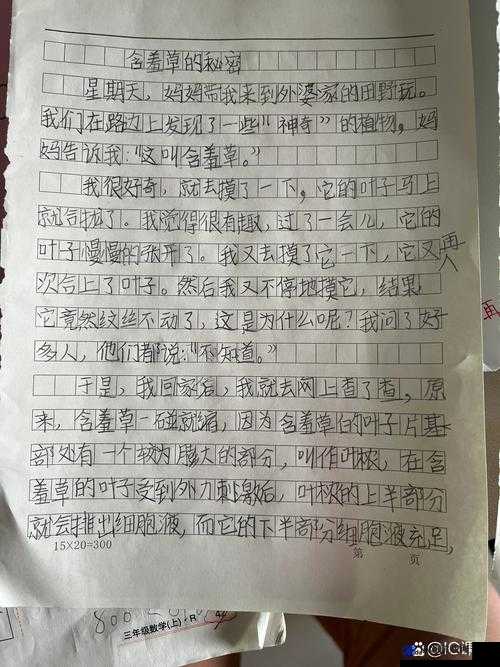 含羞草的秘密
星期天,妈妈带我来到外婆家的田野玩。
我们在路边上发现了一些“神奇”的植物,妈
妈告诉我:“这叫含羞草。”
我很好奇,就去摸了一下,它的叶子马上
就合拢了。我觉得很有趣,过了一会儿,它的
叶子慢慢的张开了。我又去摸了它一下,它又再
次合上了叶子。然后我又不停地摸它,结果
它竟然纹丝不动了,这是为什么呢?我问了好
多人,他们都说:“不知道。”
于是,我回家后,我就去网上查了查,原
来,含羞草一碰就缩,因为含羞草的叶子片基
部处有一个较为膨大的部分,叫作叶枕,在含
羞草的叶子受到外力刺激后,叶枕的上半部分
就会排出细胞液,而它的下半部分细胞液充足,
15×20=300 第 页
三年级数学(上)·R